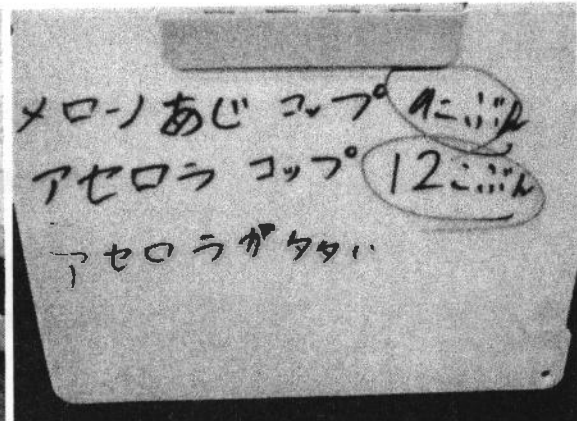 メローンあじ コップ 9こぶん
アセロラ コップ 12こぶん
アセロラが多い